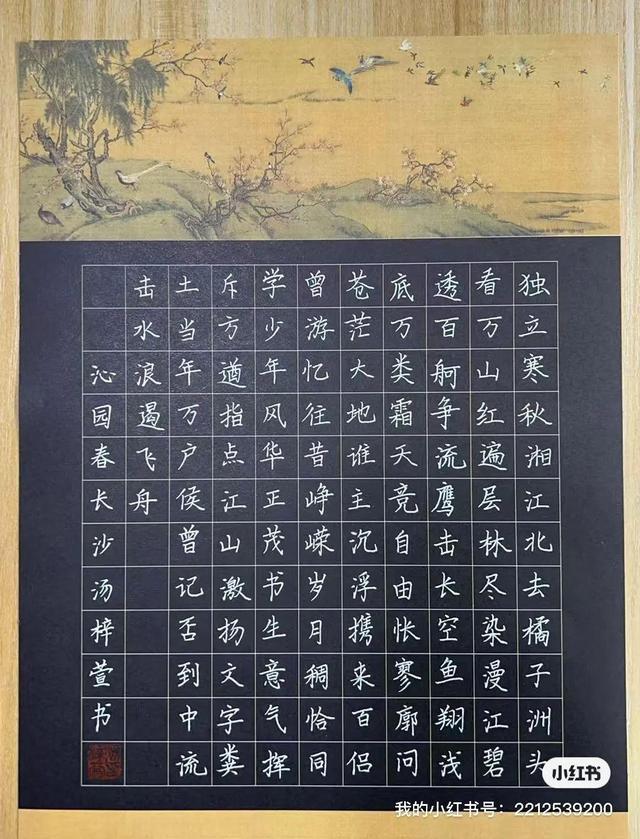 独立寒秋湘江北去橘子洲头
看万山红遍层林尽染漫江碧
透百舸争流鹰击长空鱼翔浅
底万类霜天竞自由怅寥廓问
苍茫大地谁主沉浮携来百侣
曾游忆往昔峥嵘岁月稠恰同
学少年风华正茂书生意气挥
斥方遒指点江山激扬文字粪
土当年万户侯曾记否到中流
击水浪遏飞舟
沁园春长沙汤梓萱书
小红书
我的小红书号：2212539200